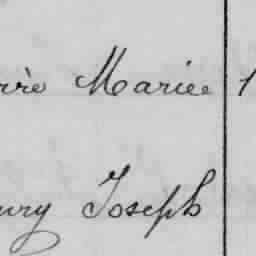 rre Marie 1
ury Joseph